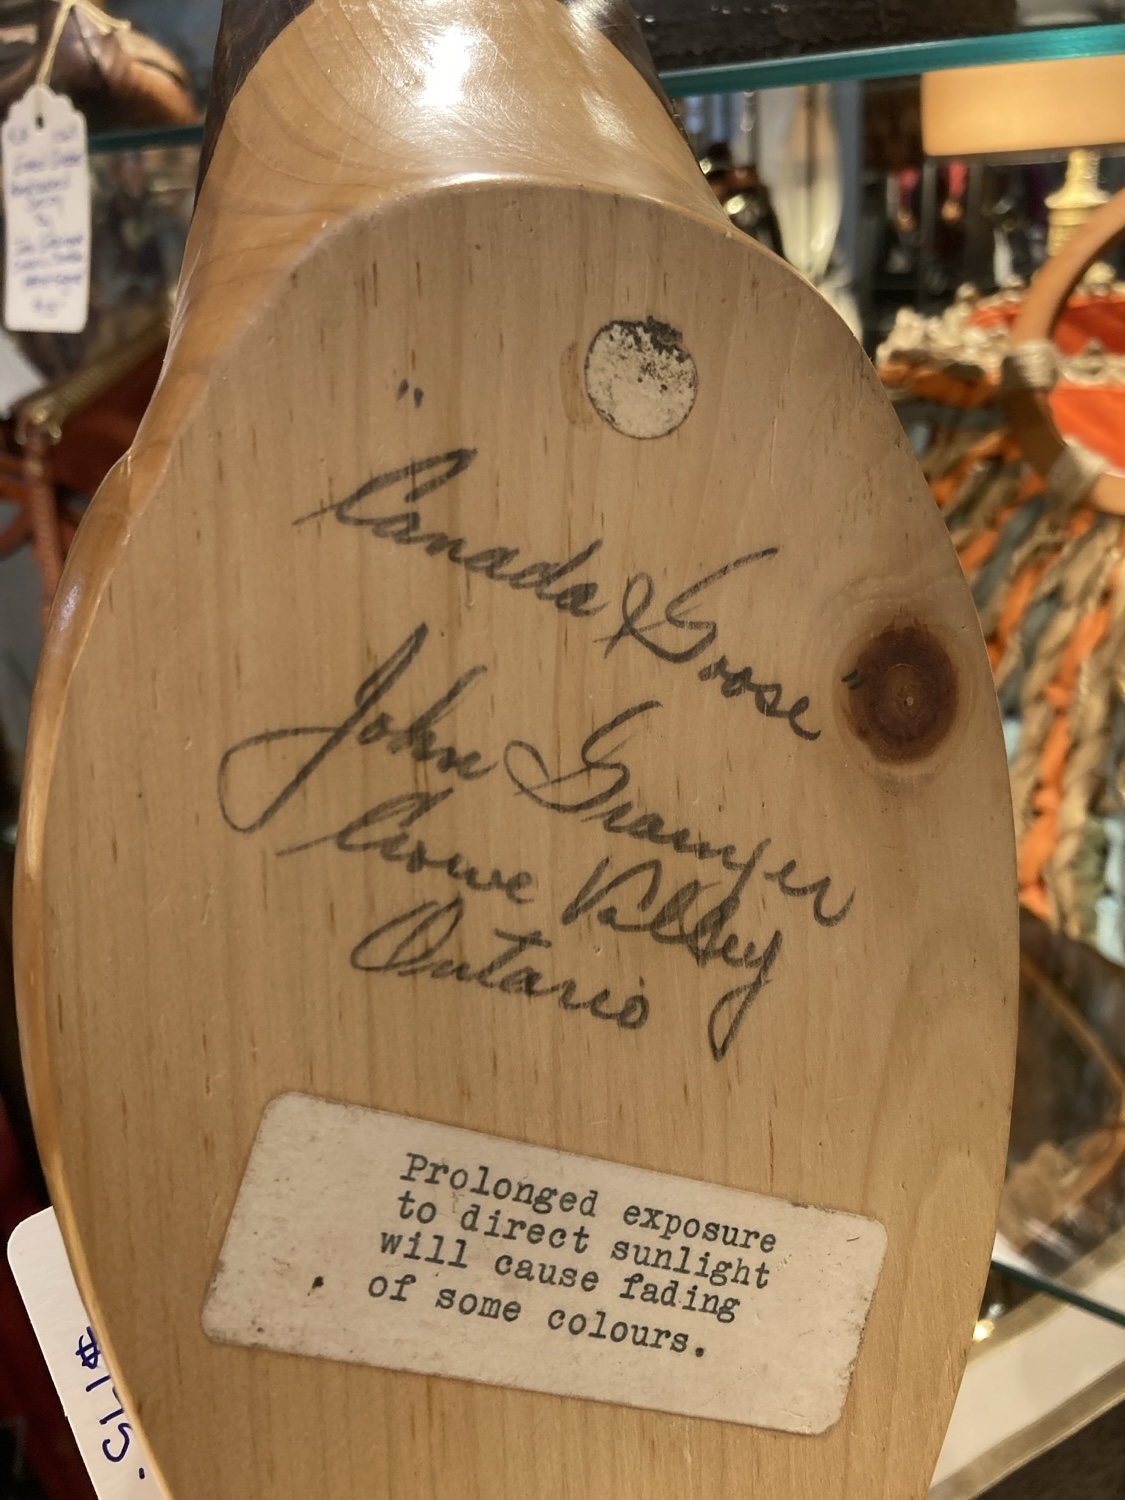 "Canada Goose"
John Grainger
Crowe Valley
Ontario
Prolonged exposure
to direct sunlight
will cause fading
of some colours.